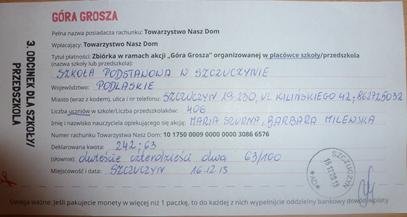 GÓRA GROSZA
Pełna nazwa posiadacza rachunku: Towarzystwo Nasz Dom
Wpłacający: Towarzystwo Nasz Dom
Tytuł płatności: Zbiórka w ramach akcji „Góra Grosza" organizowanej w placówce szkoły/przedszkola
(nazwa szkoły lub przedszkola):
SZKOŁA PODSTAWOWA W SZCZUCZYNIE
Województwo: PODLASKIE
Miasto (wraz z kodem), ulica i nr telefonu: SZCZUCZYN 19-230, UL. KILIŃSKIEGO 42; 862725032
Liczba uczniów w szkole/Liczba przedszkolaków 406
Imię i nazwisko nauczyciela opiekującego się akcją: MARIA, BARBARA MILEWSKA
Numer rachunku Towarzystwo Nasz Dom: 10 1750 0009 0000 0000 3086 6576
Deklarowana kwota: 242;63
(słownie) dwieście czterdzieści dwa 63/100
Miejscowość i data: SZCZUCZYN 16-12-15
Uwaga ważne: Jeśli pakujecie monety w więcej niż 1 paczkę, to do każdej z nich wypełnijcie oddzielny bankowy dowód wpłaty
3. ODCINEK DLA SZKOŁY/
PRZEDSZKOLA
SZCZUCZYN